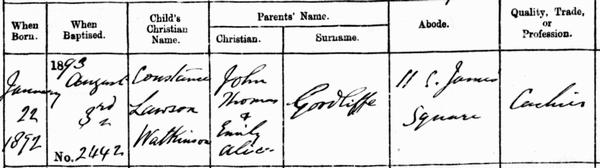 When Born.
When Baptised.
Child's Christian Name.
Parents' Name.
Christian.
Surname.
Abode.
Quality, Trade, or Profession.
January 22 1892
1893 August 3rd No. 2442
Constance Lawson Watkinson
John Thomas & Emily Alice
Goodliffe
11 S. James Square
Cashier